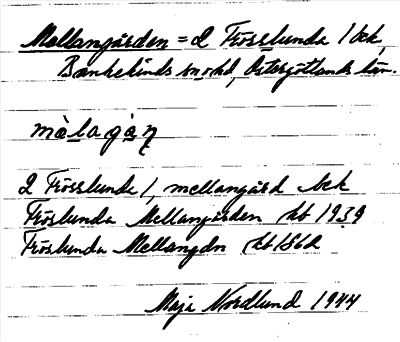 Mellangården = 2 Fröslunda 1 bek,
Bankekinds sn o hd, Östergötlands län.
mὰlagὰn̥
2 Fröslunda 1, mellangård bek
Fröslunda Mellangården kb 1939
Fröslunda Mellangdn kb 1862
Maja Nordlund 1944